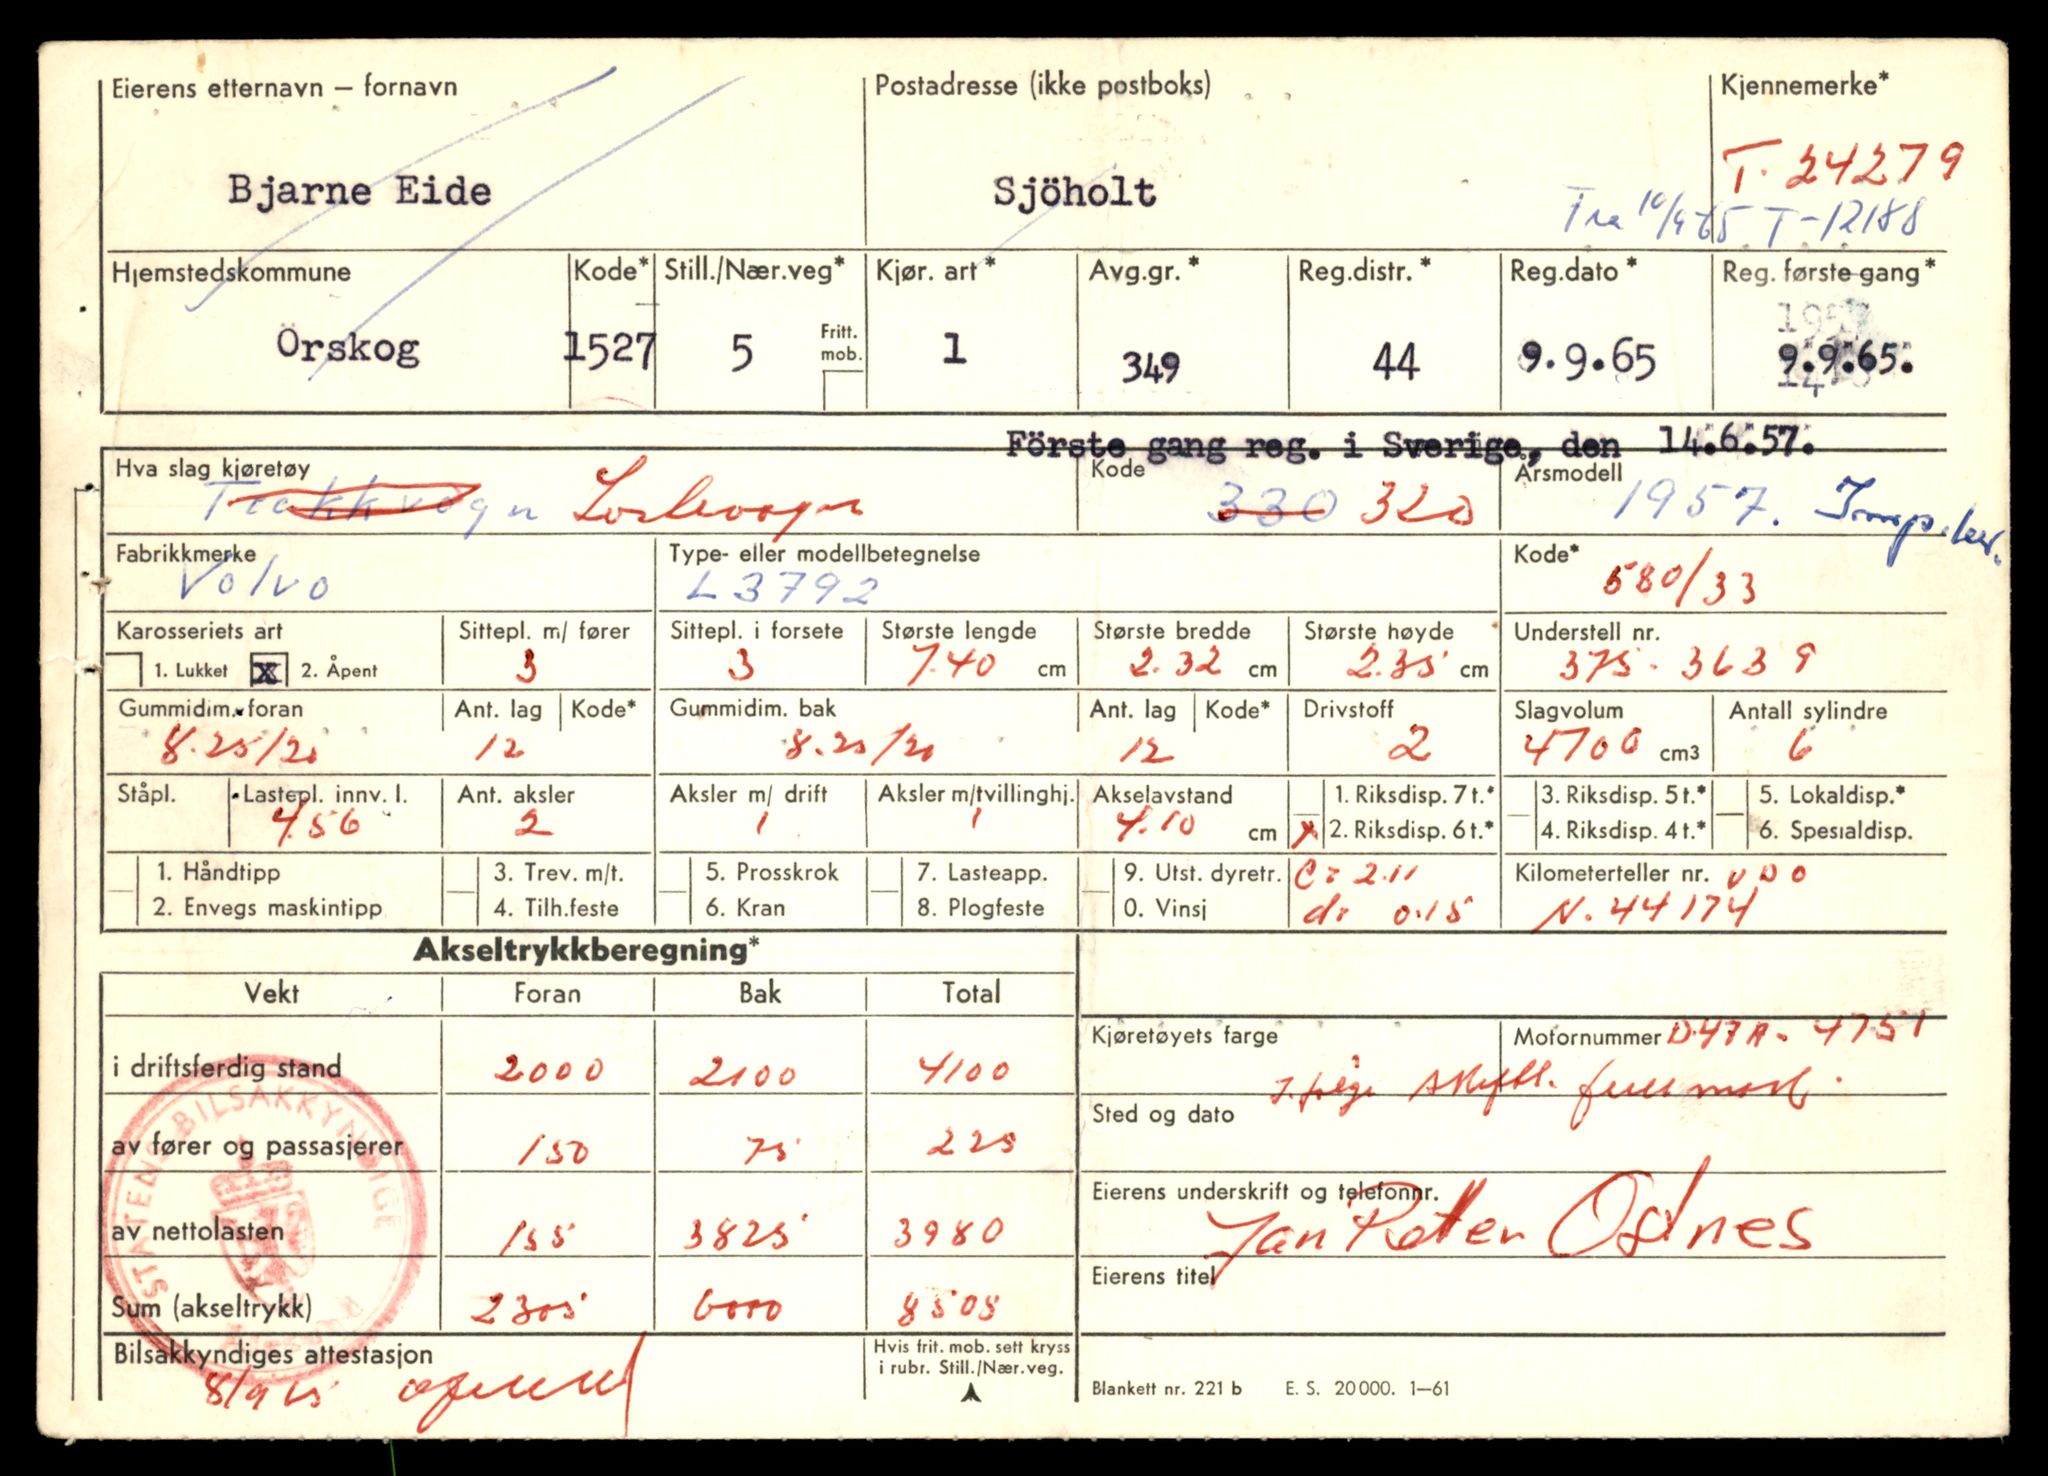 Eierens etternavn — fornavn
Postadresse (ikke postboks)
Kjennemerke*
T. 24279
Bjarne Eide
Sjöholt
Fra 10/9-65 T-12188
Hjemstedskommune
Kode*
Still./Nær.veg*
Kjør. art*
Avg.gr.*
Reg.distr.*
Reg.dato*
Reg. første gang*
Örskog
1527
5
Fritt. mob.
1
349
44
9.9.65
9.9.65.
Förste gang reg. i Sverige, den 14.6.57.
Hva slag kjøretøy
Trekkvogn
Kode
330 320
Årsmodell
1957.
Fabrikkmerke
Volvo
Type- eller modellbetegnelse
L3792
Kode*
580/33
Karosseriets art
1. Lukket
x
2. Åpent
Sittepl. m/ fører
3
Sittepl. i forsete
3
Største lengde
7.40 cm
Største bredde
2.32 cm
Største høyde
2.35 cm
Understell nr.
375. 3639
Gummidim. foran
8.25/20
Ant. lag
12
Kode*
Gummidim. bak
8.25/20
Ant. lag
12
Kode*
Drivstoff
2
Slagvolum
4700 cm3
Antall sylindre
6
Ståpl.
Lastepl. innv. l.
4.56
Ant. aksler
2
Aksler m/ drift
1
Aksler m/tvillinghj.
1
Akselavstand
4.10 cm
1. Riksdisp. 7 t.*
x 2. Riksdisp. 6 t.*
3. Riksdisp. 5 t.*
4. Riksdisp. 4 t.*
5. Lokaldisp.*
6. Spesialdisp.
1. Håndtipp
2. Envegs maskintipp
3. Trev. m/t.
4. Tilh.feste
5. Prosskrok
6. Kran
7. Lasteapp.
8. Plogfeste
9. Utst. dyretr.
0. Vinsj
C = 2.11
d = 0.15
Kilometerteller nr. VDO
N. 44174
Akseltrykkberegning*
Vekt
Foran
Bak
Total
i driftsferdig stand
2000
2100
4100
av fører og passasjerer
150
75
225
av nettolasten
155
3825
3980
Sum (akseltrykk)
2305
6000
8505
Kjøretøyets farge
Motornummer D47A - 4751
Sted og dato
Eierens underskrift og telefonnr.
Jan Petter Ostnes
Eierens titel
Bilsakkyndiges attestasjon
8/9 65
Hvis frit. mob. sett kryss
i rubr. Still./Nær.veg.
Blankett nr. 221 b E. S. 20000. 1—61
STATENS BILSAKKYNDIGE